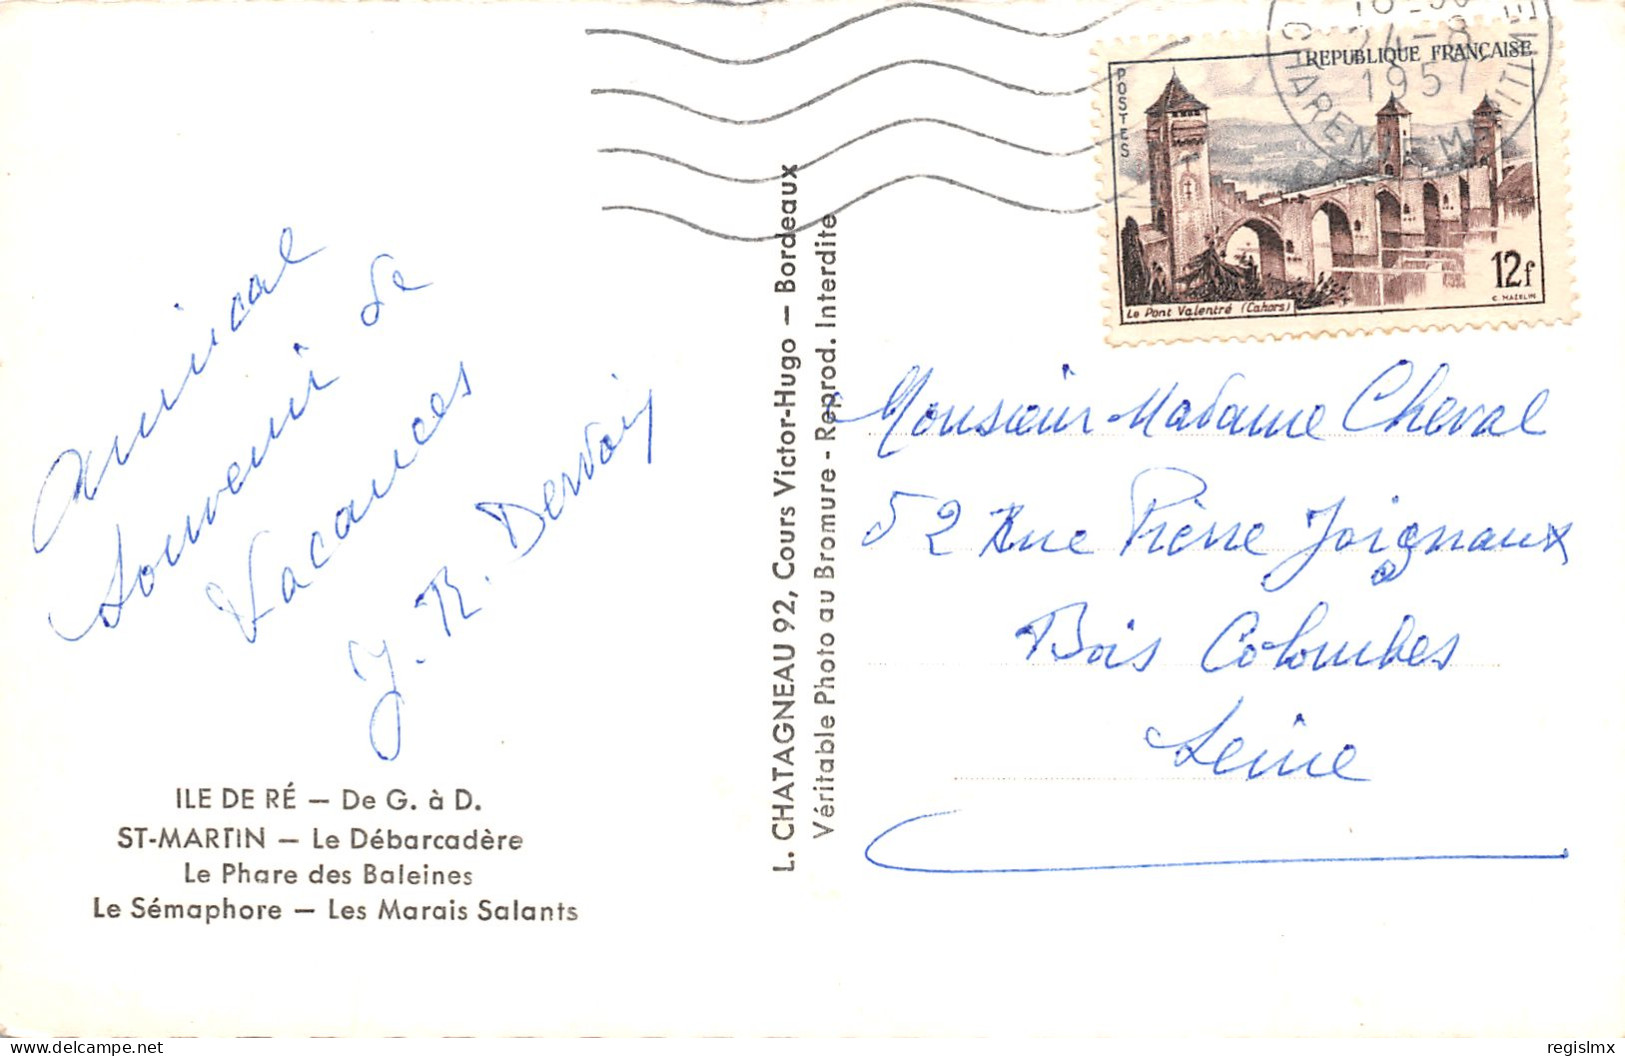 Amical
Souvenir de
Vacances
J. R.
ILE DE RÉ — De G. à D.
ST-MARTIN — Le Débarcadère
Le Phare des Baleines
Le Sémaphore — Les Marais Salants
L. CHATAGNEAU 92, Cours Victor-Hugo — Bordeaux
Véritable Photo au Bromure - Reprod. Interdite
24-8
1957
CHARENTE MARITIME
REPUBLIQUE FRANÇAISE
POSTES
12f
Le Pont Valentré (Cahors)
C. MAZELIN
Monsieur Madame Cheval
52 Rue Pierre Joigneaux
Bois Colombes
Seine
delcampe.net
regislmx